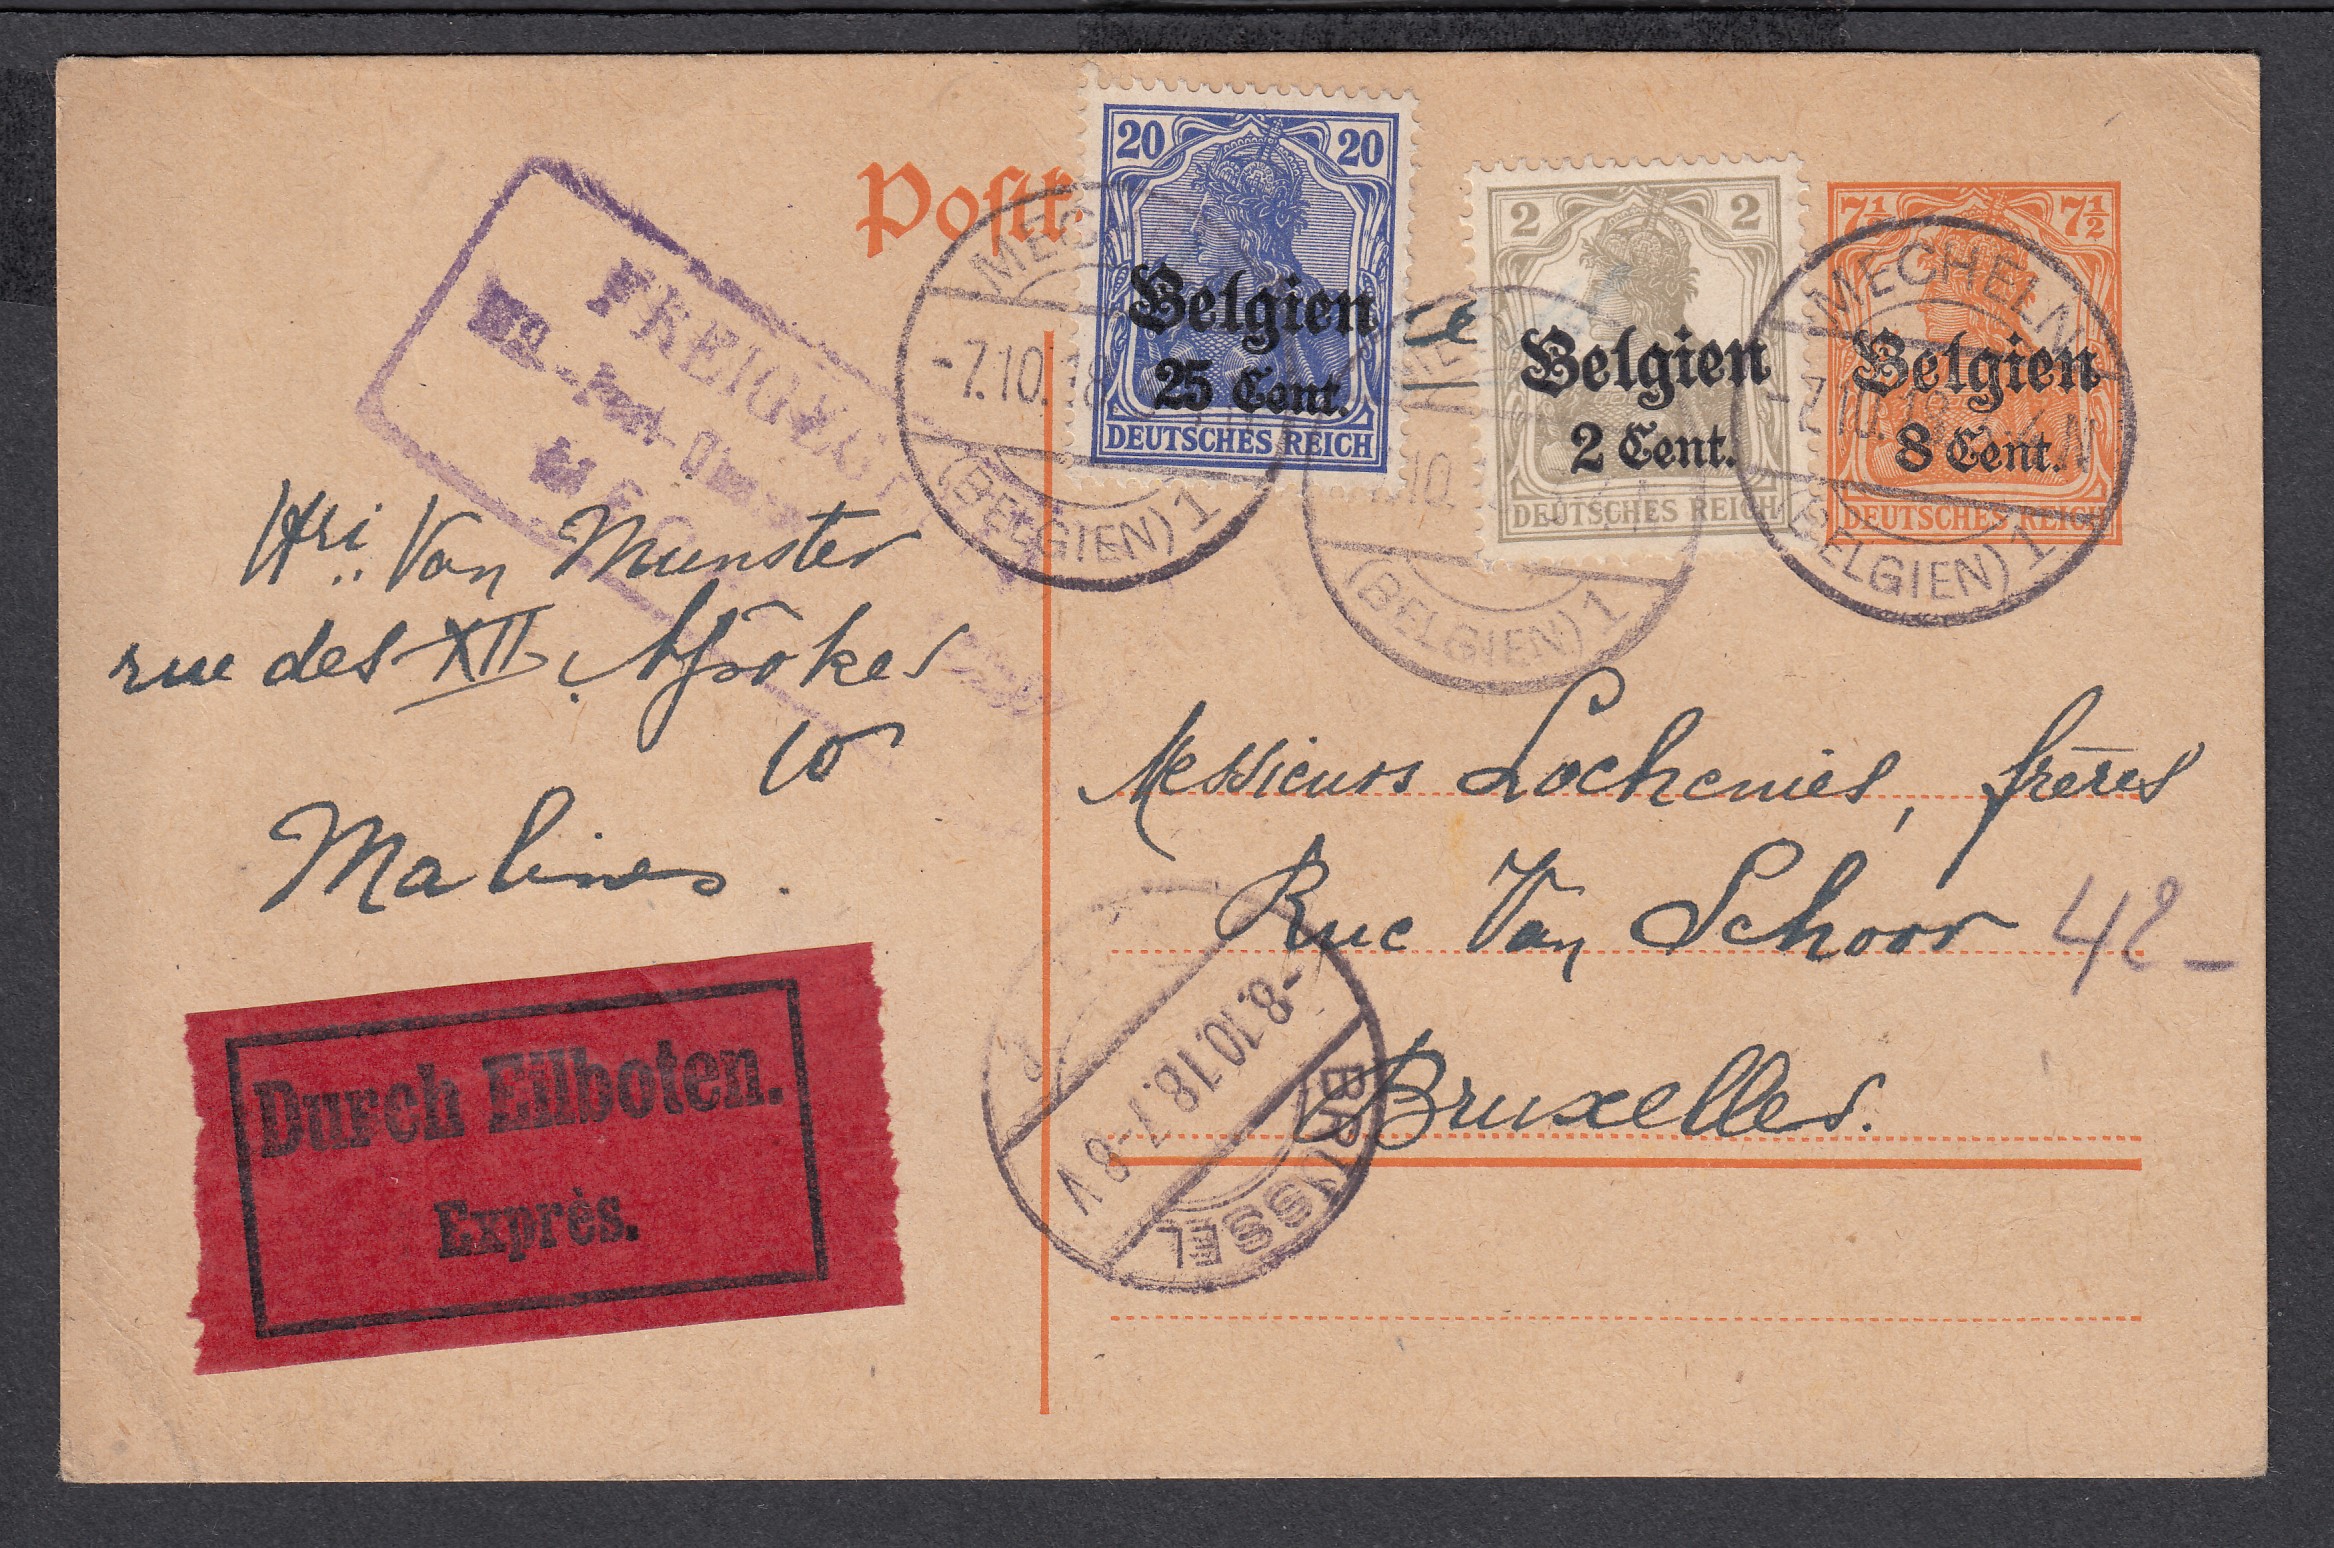 Postk
20 20
Belgien
25 Cent.
DEUTSCHES REICH
2 2
Belgien
2 Cent.
DEUTSCHES REICH
7½ 7½
Belgien
8 Cent.
DEUTSCHES REICH
MEC
-7.10.18
(BELGIEN) 1
10.
(BELGIEN) 1
MECHELN
-7.10.18 N
(BELGIEN) 1
FREIGEG
Hri. Van Munster
rue des XII Apôtres
10
Malines.
Messieurs Lochenies, frères
Rue Van Schoor 42-
Bruxelles.
BRÜSSEL
-8.10.18.7-8V
Durch Eilboten.
Exprès.